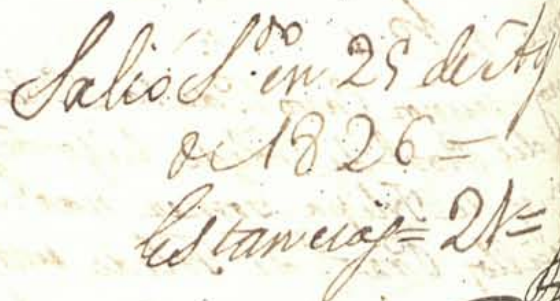 Salió S.do en 25 de Ag
de 1826=
Estancias= 21=